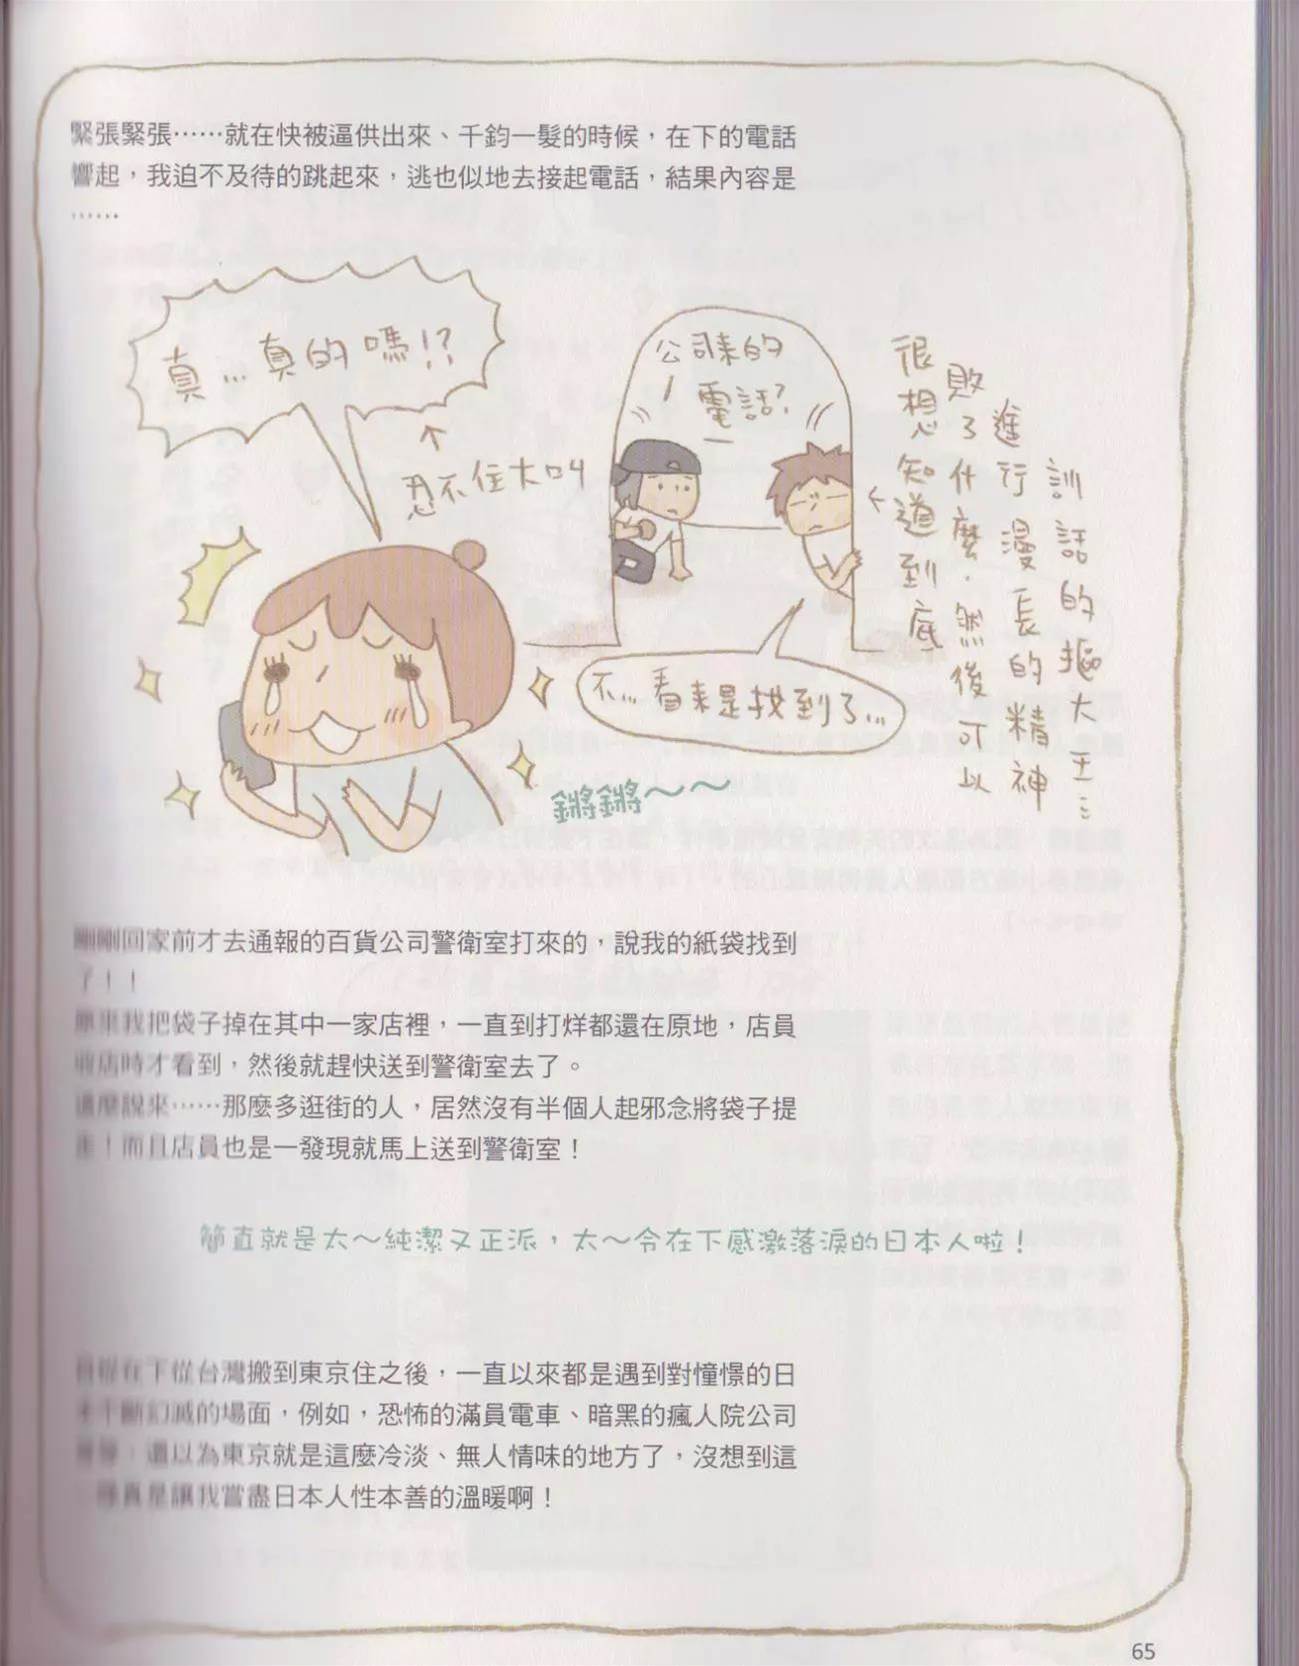 緊張緊張……就在快被逼供出來、千鈞一髮的時候，在下的電話
響起，我迫不及待的跳起來，逃也似地去接起電話，結果內容是
……
真…真的嗎!?
忍不住大叫
公司來的
電話?
不…看來是找到了…
很想知道到底
敗了什麼.然後可以
進行漫長的精神
訓話的摳大王…
鏘鏘～～
剛剛回家前才去通報的百貨公司警衛室打來的，說我的紙袋找到
了！！
原來我把袋子掉在其中一家店裡，一直到打烊都還在原地，店員
收店時才看到，然後就趕快送到警衛室去了。
這麼說來……那麼多逛街的人，居然沒有半個人起邪念將袋子提
走！而且店員也是一發現就馬上送到警衛室！
簡直就是太～純潔又正派，太～令在下感激落淚的日本人啦！
自從在下從台灣搬到東京住之後，一直以來都是遇到對憧憬的日
本不斷幻滅的場面，例如，恐怖的滿員電車、暗黑的瘋人院公司
等等，還以為東京就是這麼冷淡、無人情味的地方了，沒想到這
真是讓我嘗盡日本人性本善的溫暖啊！
65